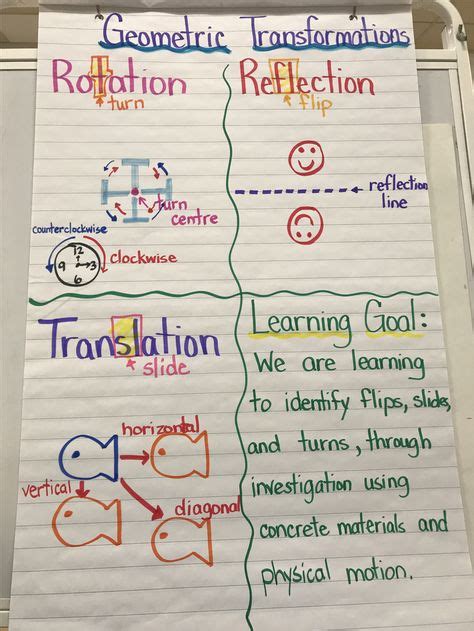 Geometric Transformations
Rotation
turn
turn
centre
counterclockwise
12
9 3
6
clockwise
Reflection
flip
reflection
line
Translation
slide
horizontal
vertical
diagonal
Learning Goal:
We are learning
to identify flips, slides,
and turns, through
investigation using
concrete materials and
physical motion.